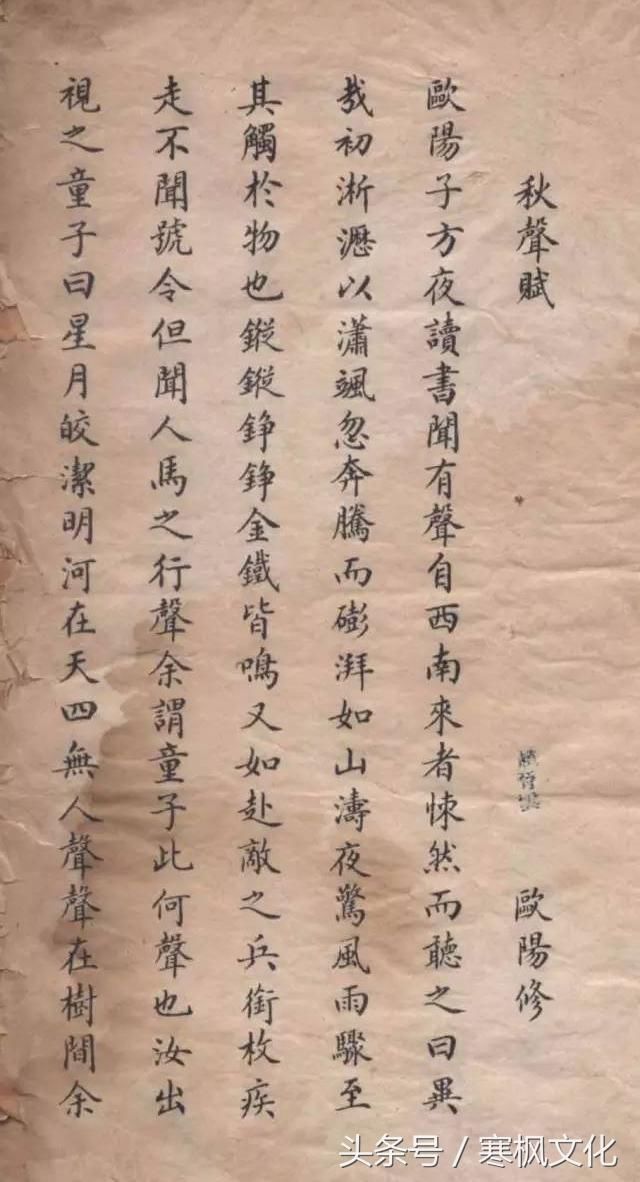 秋聲賦 歐陽修
歐陽子方夜讀書聞有聲自西南來者悚然而聽之曰異
哉初淅瀝以瀟颯忽奔騰而䃘湃如山濤夜驚風雨驟至
其觸於物也鏦鏦錚錚金鐵皆鳴又如赴敵之兵銜枚疾
走不聞號令但聞人馬之行聲余謂童子此何聲也汝出
視之童子曰星月皎潔明河在天四無人聲聲在樹間余
头条号/寒枫文化